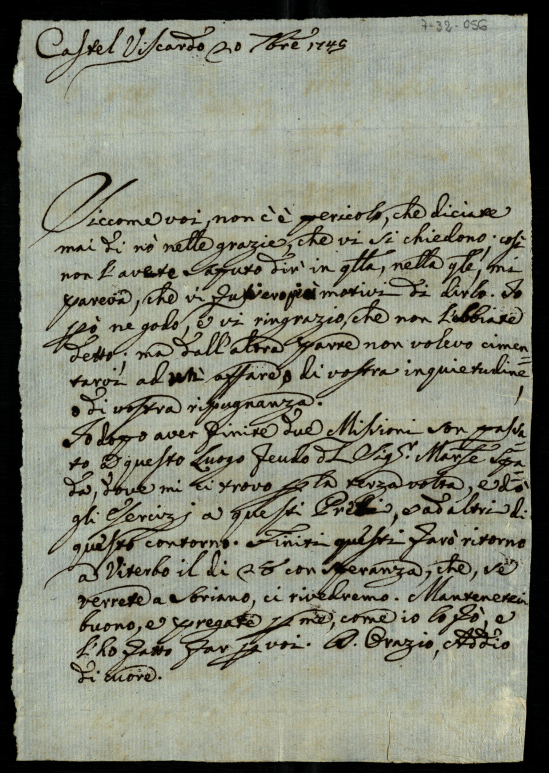 7-32-056
Castel Viscardo 20 9bre 1745
Siccome voi, non c'è pericolo, che diciate
mai di nò nelle grazie, che vi si chiedono; così
non l'avete saputo dir in qtta, nella qle, mi
pareva, che vi fussero più motivi di dirlo. Io
pò ne godo, e vi ringrazio, che non l'abbiate
detto: ma dall'altra parte non volevo cimen-
tarvi ad affare, o di vostra inquietudine,
o di vostra ripugnanza.
Io dopo aver finite due Missioni son passa-
to a questo Luogo feudo del Sigr. Marse Spa-
da, dove mi ci trovo p la terza volta, e dò
gli Esercizj a questi Preti, e ad altri di
questo contorno. Finiti questi farò ritorno
a Viterbo il di 28 con speranza, che, se
verrete a Sbriano, ci rivedremo. Mantenetevi
buono, e pregate p me, come io lo fò, e
l'ho fatto far p voi. D. Orazio, Addio
di cuore.